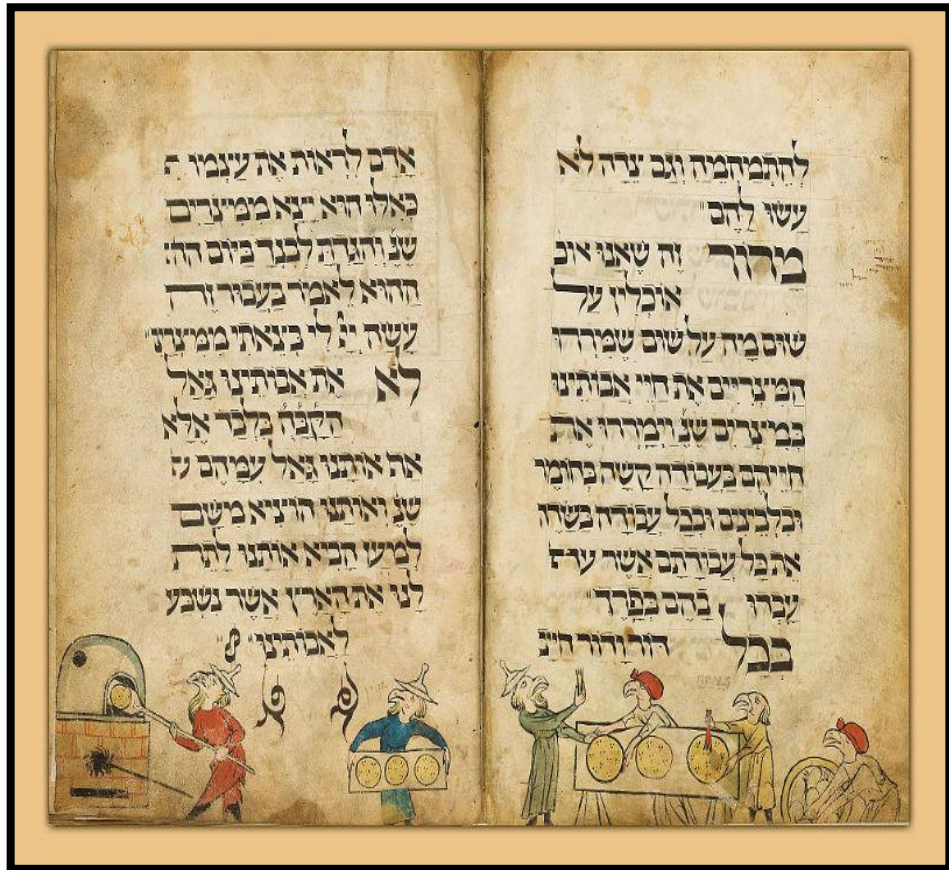 להתמהמה וגם צדה לא
עשו להם
מרור זה שאנו אוכ
אוכלין על
שום מה על שום שמררו
המצריים את חיי אבותינו
במצרים שנ וימררו את
חייהם בעבודה קשה בחומר
ובלבינים ובכל עבודה בשדה
את כל עבודתם אשר
עבדו בהם בפרך
בכל דור ודור חייב
אדם לראות את עצמו
כאלו הוא יצא ממצרים
שנ והגדת לבנך ביום הה
ההוא לאמר בעבור זה
עשה יי לי בצאתי ממצרים
לא את אבותינו גאל
הקבה בלבד אלא
אף אותנו גאל עמהם
שנ ואותנו הוציא משם
למען הביא אותנו לתת
לנו את הארץ אשר נשבע
לאבותינו